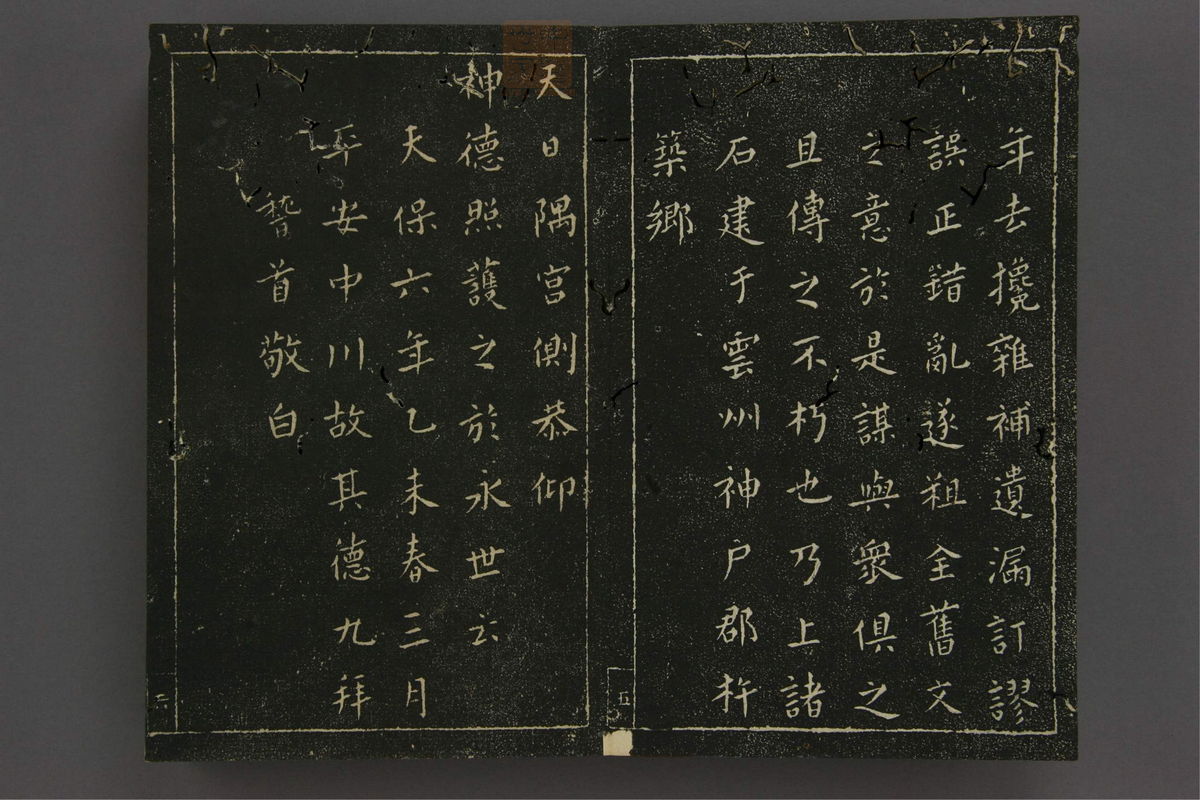 年去攙雜補遺漏訂謬
誤正錯亂遂粗全舊文
之意於是謀與衆俱之
且傳之不朽也乃上諸
石建于雲州神戶郡杵
築鄉
天日隅宮側恭仰
神德照護之於永世云
天保六年乙未春三月
平安中川故其德九拜
稽首敬白
五